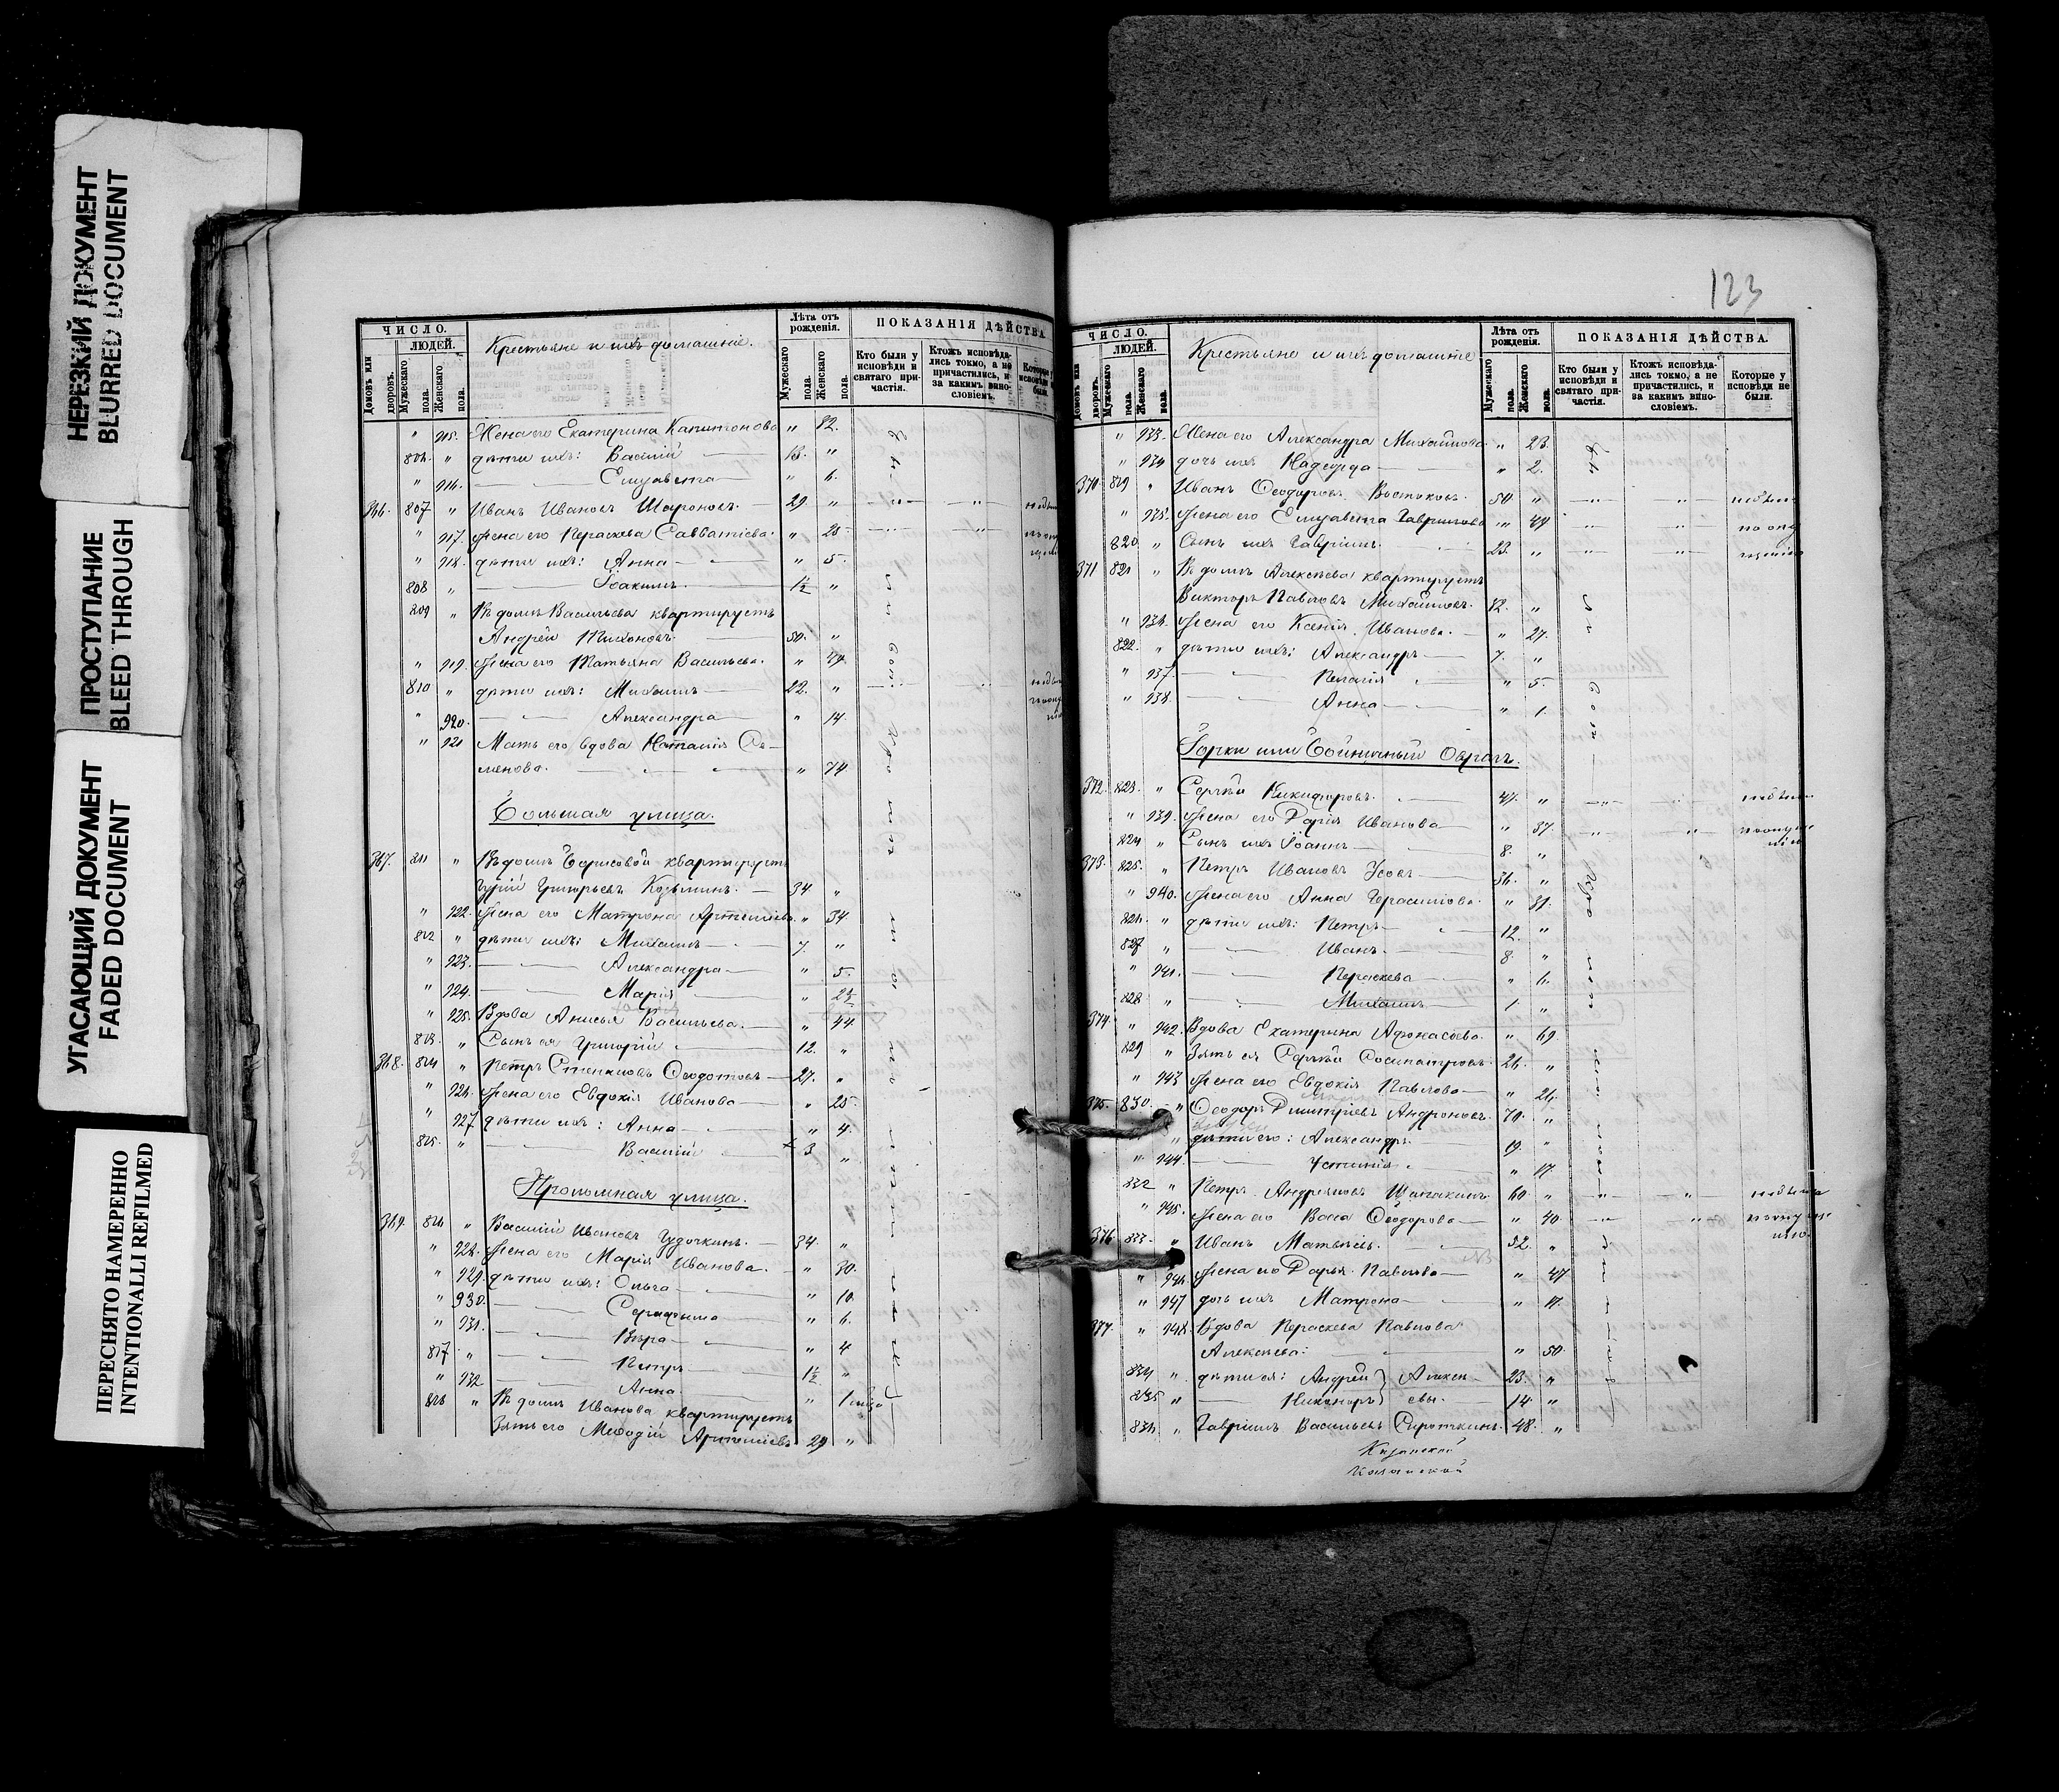 НЕРЕЗКИЙ ДОКУМЕНТ
BLURRED DOCUMENT
ПРОСТУПАНИЕ
BLEED THROUGH
УГАСАЮЩИЙ ДОКУМЕНТ
FADED DOCUMENT
ПЕРЕСНЯТО НАМЕРЕННО
INTENTIONALLI REFILMED
ЧИСЛО.
ЛЮДЕЙ.
Домовъ или дворовъ.
Мужескаго пола.
Женскаго пола.
Крестьяне и ихъ домашніе.
Лѣта отъ рожденія.
Мужескаго пола.
Женскаго пола.
ПОКАЗАНІЯ ДѢЙСТВА.
Кто были у исповѣди и святаго причастія.
Ктожъ исповѣдались токмо, а не причастились, и за какимъ винословіемъ.
Которые у исповѣди не были.
" 915. Жена его Екатерина Капитонова " 32.
806. " дѣти ихъ: Василій 13. "
" 916. Елизавета " 6.
366. 807 " Иванъ Ивановъ Шароновъ. 29. "
" 917. Жена его Параскева Савватіева. " 25
" 918. дѣти ихъ: Анна " 5.
808 " Іоакимъ 1½ "
809 " Въ домѣ Васильева квартируетъ
Андрей Тихоновъ. 50. "
" 919. Жена его Татьяна Васильева. " 49.
810 " дѣти ихъ: Михаилъ 22. "
" 920. Александра " 14.
" 921 Мать его вдова Наталія Се-
менова. " 74.
Большая улица.
367. 811 " Въ домѣ Борисовой квартируетъ
Гурій Григорьевъ Козьминъ. 34 "
" 922. Жена его Матрона Артемьева. " 34
812 " дѣти ихъ: Михаилъ 7. "
" 923. Александра " 5.
" 924. Марія " 2½
" 925. Вдова Анисья Васильева. " 44.
813. " Сынъ ея Григорій 12. "
368. 814 " Петръ Степановъ Ѳедотовъ 27. "
" 926. Жена его Евдокія Иванова " 25.
" 927 дѣти ихъ: Анна " 4.
815. " Василій 3 "
Проломная улица.
369. 816 " Василій Ивановъ Чудочкинъ. 34. "
" 928. Жена его Марія Иванова. " 30.
" 929. дѣти ихъ: Ольга " 10.
" 930. Серафима " 6.
" 931. Вѣра " 4
817 " Петръ 1½ "
" 932 Анна " 1
818 " Въ домѣ Иванова квартируетъ
Зять его Меѳодій 29 "
123
ЧИСЛО.
ЛЮДЕЙ.
Домовъ или дворовъ.
Мужескаго пола.
Женскаго пола.
Крестьяне и ихъ домашніе
Лѣта отъ рожденія.
Мужескаго пола.
Женскаго пола.
ПОКАЗАНІЯ ДѢЙСТВА.
Кто были у исповѣди и святаго причастія.
Ктожъ исповѣдались токмо, а не причастились, и за какимъ винословіемъ.
Которые у исповѣди не были.
" 933. Жена его Александра Михайлова " 23.
" 934 дочь ихъ Надежда " 2.
370. 819 " Иванъ Ѳеодоровъ Востоковъ. 50. " небыли
" 935. Жена его Елизавета Гаврилова " 49 по опу
820 " Сынъ ихъ Гавріилъ. 23. " щенію
371 821 " Въ домѣ Алексѣева квартируетъ
Викторъ Павловъ Михайловъ. 32. "
" 936. Жена его Ксенія Иванова. " 27.
822. " дѣти ихъ: Александръ 7. "
" 937. Пелагія " 5.
" 938. Анна " 1.
Горки или Войничный Оврагъ.
372. 823. " Сергѣй Никифоровъ. 47. " небыли
" 939. Жена его Дарія Иванова " 37.
824 " Сынъ ихъ Іоаннъ 8. "
373. 825. " Петръ Ивановъ Усовъ 36. "
" 940. Жена его Анна Герасимова " 31.
826. " дѣти ихъ: Петръ 12. "
827 " Иванъ 8. "
" 941. Параскева " 6.
828 " Михаилъ 1. "
374. " 942. Вдова Екатерина Афонасьева " 69.
829 " Зять ея Сергѣй Сосипатровъ 26. "
" 943 Жена его Евдокія Павлова " 26.
375. 830. " Ѳеодоръ Димитріевъ Андроновъ. 70. "
" дѣти его: Александръ. 19. "
" 944. Устинія " 17.
832 " Петръ Андреяновъ Шапакинъ. 60. " небыли
" 945. Жена его Васса Ѳеодорова " 40.
376 833. " Иванъ Матвѣевъ. 52. "
" 946. Жена его Дарья Павлова " 47
" 947 дочь ихъ Матрона " 17.
377. " 948. Вдова Параскева Павлова
Алексѣева. " 50.
834 " дѣти ея: Андрей } Алексѣ- 23. "
835 " Никаноръ } евы. 14. "
836 " Гавріилъ Васильевъ Сироткинъ. 48. "
Казанской